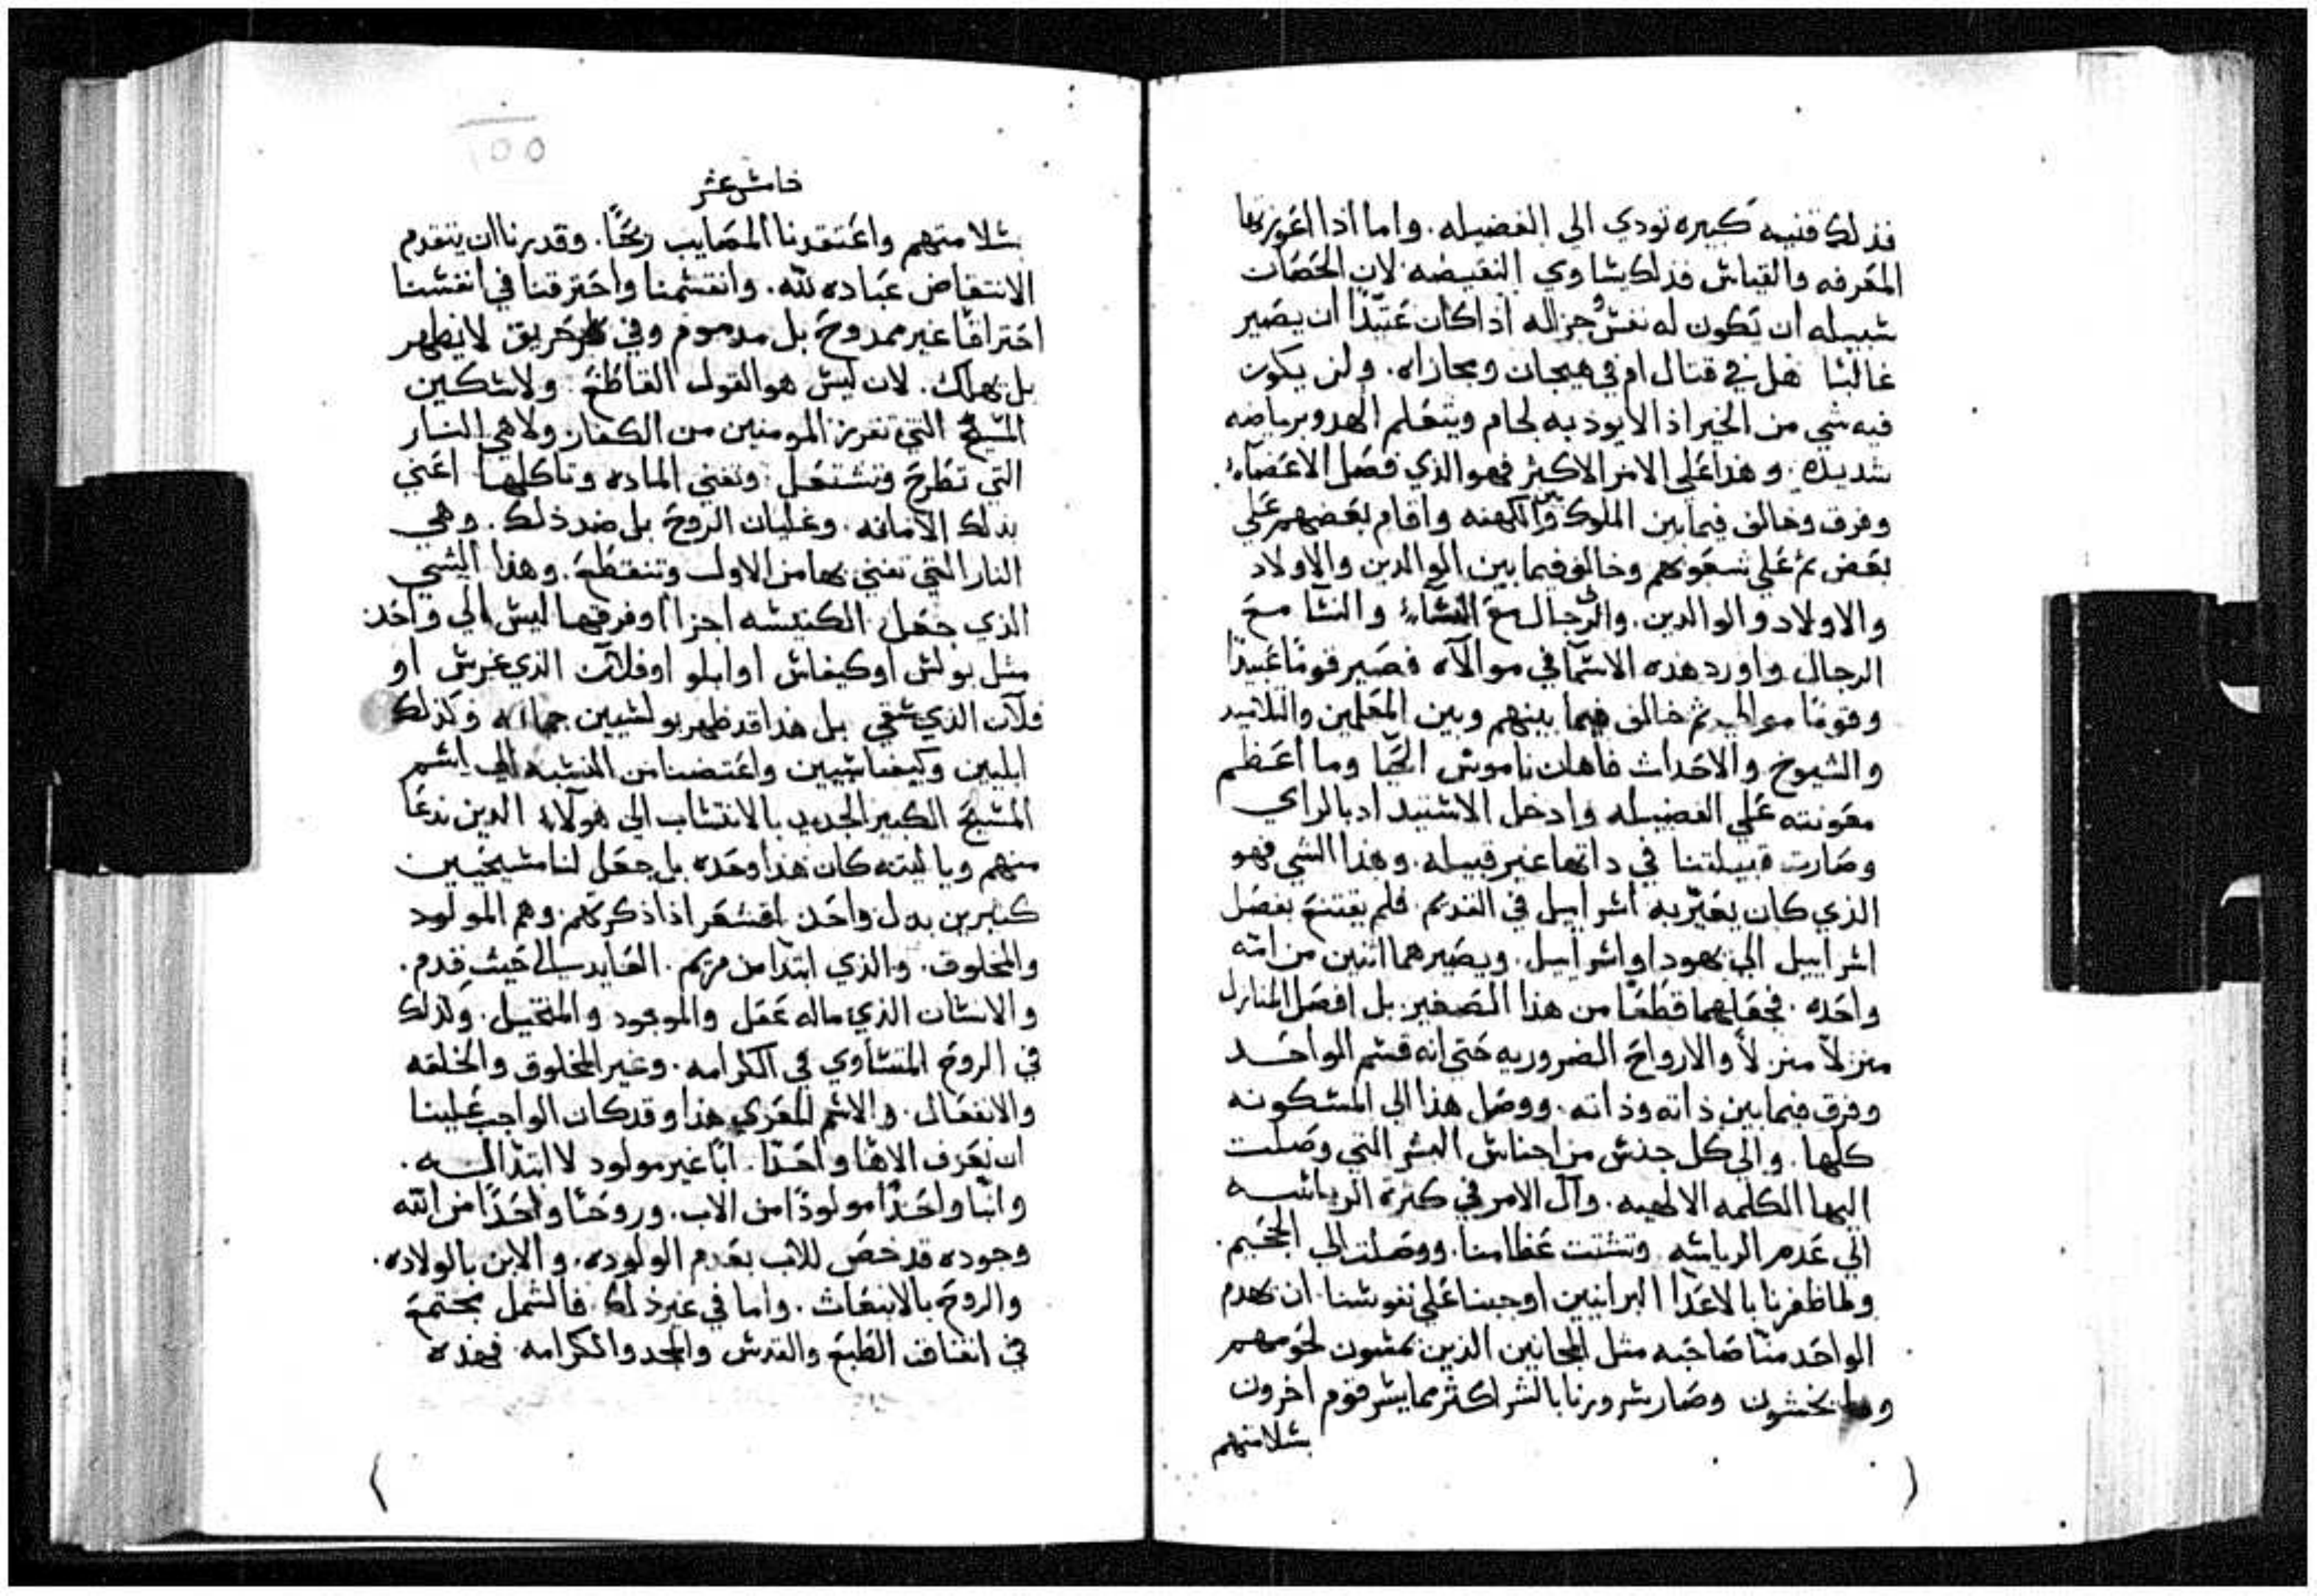 فذلك قنيه كبيره تودي الى الفضيله. واما اذا اعوزتها
المعرفه والقياس فذلك يساوي النقيضه لان الحصان
سبيله ان تكون له نفسٌ جزاله اذا كان عتيدًا ان يصير
غالبًا هل في قتال او في هيجان ومجازاه. ولن يكون
فيه شي من الخير اذا لا يوذبه لجام ويتعلم الهدو برياضه
شديده. وهذا على الامر الاكثر فهو الذي فصل الاعضاء
وفرق وخالف فيما بين الملوك وبين الكهنه واقام بعضهم على
بعض ثم على شعوبهم وخالف فيما بين الوالدين والاولاد
والاولاد والوالدين. والرجال مع النساء والنسا مع
الرجال واورد هذه الاسما في موالاه فصير قومًا عبيدًا
وقومًا موالي ثم خالف فيما بينهم وبين المعلمين والتلاميد
والشيوخ والاحداث فاهان ناموس الحيا وما اعظم
معونته على الفضيله وادخل الاستبداد بالراي
وصارت قبيلتنا في داتها غير قبيله. وهذا الشي فهو
الذي كان يعيّر به اسراييل في القديم. فلم يقتنع بفصل
اسراييل الى يهودا واسراييل. ويصيرهما اتنين من امّه
واحده. فجعلهما قطعًا من هذا الصغير. بل افصل المنازل
منزلاً منزلاً والارواح الضروريه حتى انه قسم الواحد
وفرق فيما بين ذاته وذاته. ووصل هذا الى المسكونه
كلها. والى كل جنس من اجناس البشر التي وصلت
اليها الكلمه الالهيه. وآل الامر في كثرة الرياسه
الى عدم الرياسه وتشتت عظامنا. ووصلت الى الجحيم.
ولما ظفرنا بالاعدا البرانيين اوجبنا على نفوسنا ان يهدم
الواحد منا صاحبه مثل المجانين الذين يمشون لحومهم
وما يحسون وصار سرورنا بالشر اكثر مما يسر قوم اخرون
بسلامتهم
خامس عشر
بسلامتهم واعتقدنا المصايب ربحًا. وقدرنا ان يتقدم
الانتقاض عباده لله. وانقسمنا واحترقنا في انفسنا
احتراقًا غير ممدوح بل مدموم وفي حريق لا يطهر
بل يهلك. لان ليس هو القول القاطع. ولا سكين
المسيح التي تفرز المومنين من الكفار ولا هي النار
التي تطرح وتشتعل وتفني الماده وتاكلها اعني
بذلك الامانه. وغليان الروح بل ضد ذلك. وهي
النار التي تفني بها من الاول وتنقطع. وهذا الشي
الذي جعل الكنيسه اجزاا وفرقها ليس الي واحد
مثل بولس او كيفاس او ابلو او فلان الذي غرس او
فلان الذي سقي بل هذا قد ظهر بولسيين جماعه وكذلك
ابليين وكيفاسيين واعتضنا من النسبه الى اسم
المسيح الكبير الجديد بالانتساب الى هولآء الدين ندعا
منهم ويا ليته كان هذا وحده بل جعل لنا مسيحيين
كثيرين بدل واحد اقشعر اذا ذكرتهم وهم المولود
والمخلوق. والذي ابتدا من مريم. العايد الى حيث قدم.
والانسان الذي ماله عقل والموجود والمتخيل. ولذلك
في الروح المتساوي في الكرامه. وغير المخلوق والخلقه
والانفعال. والاسم المعري هذا وقد كان الواجب علينا
ان نعرف الاهًا واحدًا. ابًا غير مولود لا ابتدا له.
وابنًا واحدًا مولودًا من الاب. وروحًا واحدًا من الله
وجوده قد خص للاب بعدم الولوده، والابن بالولاده.
والروح بالانبعاث. واما في غير ذلك. فالشمل مجتمع
في اتفاق الطبع والقدس والمجد والكرامه. فهذه